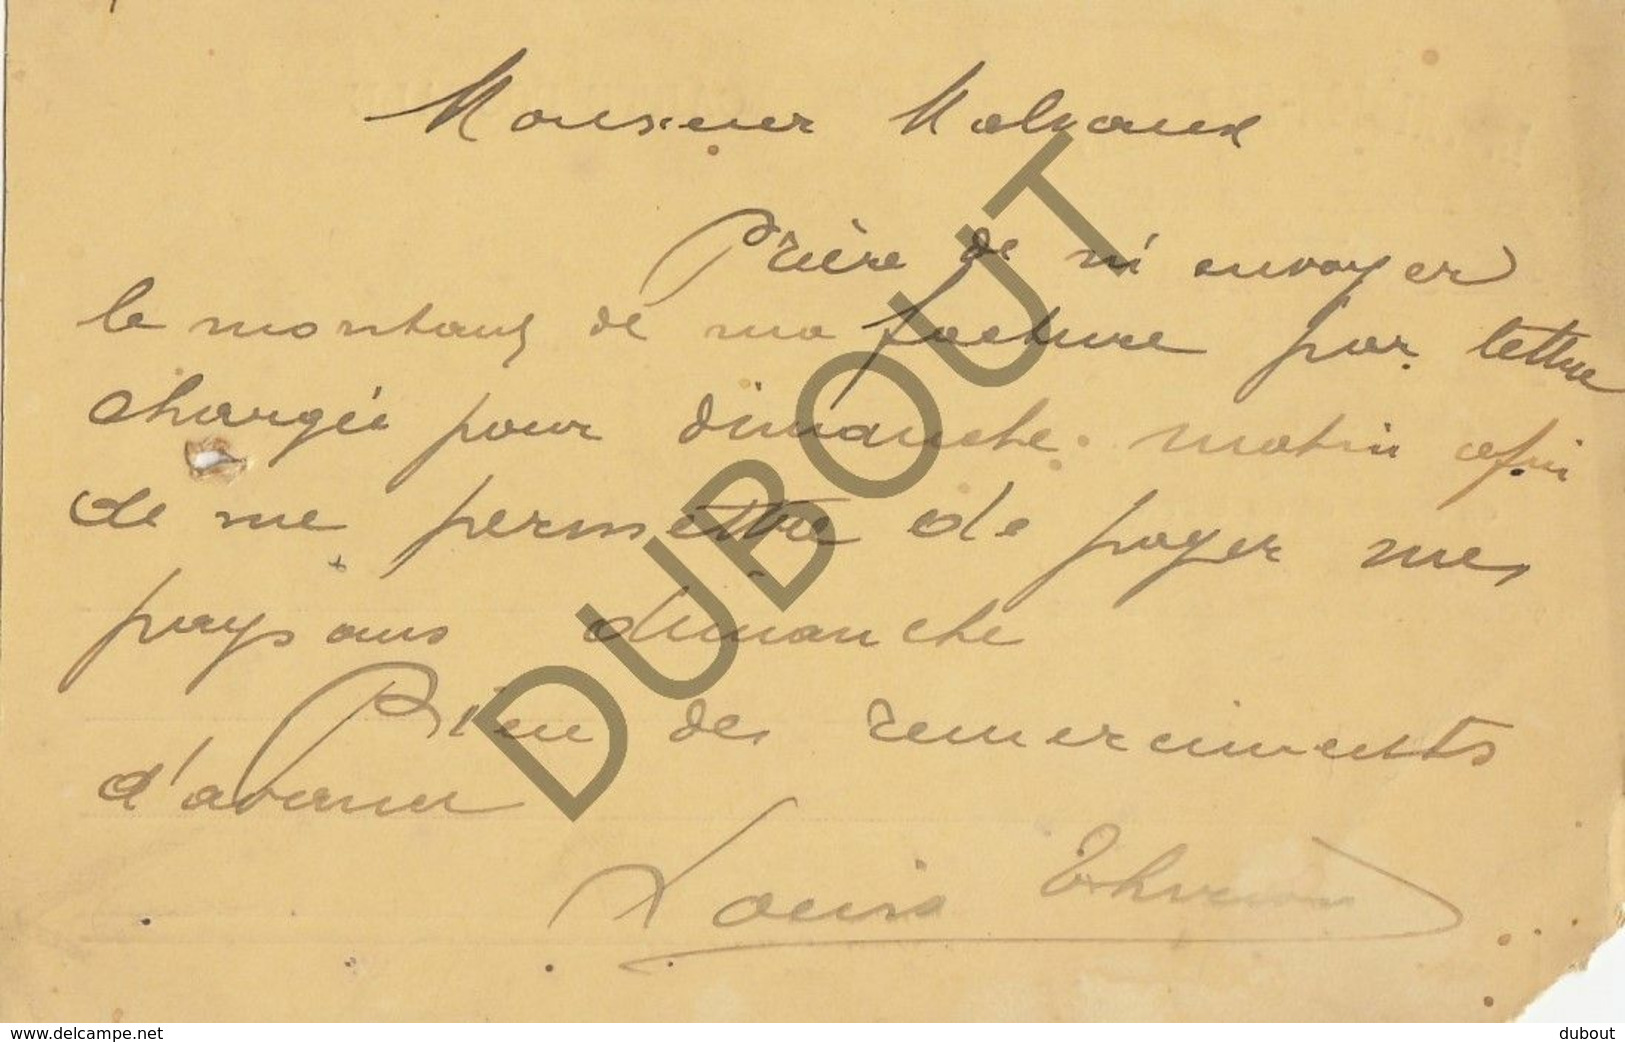 Monsieur Malvaux
Prière de m'envoyer
le montant de ma facture par lettre
chargée pour dimanche matin afin
de me permettre de payer mes
paysans dimanche
Bien des remerciments
d'avance
Louis
DUBOUT
www.delcampe.net
dubout